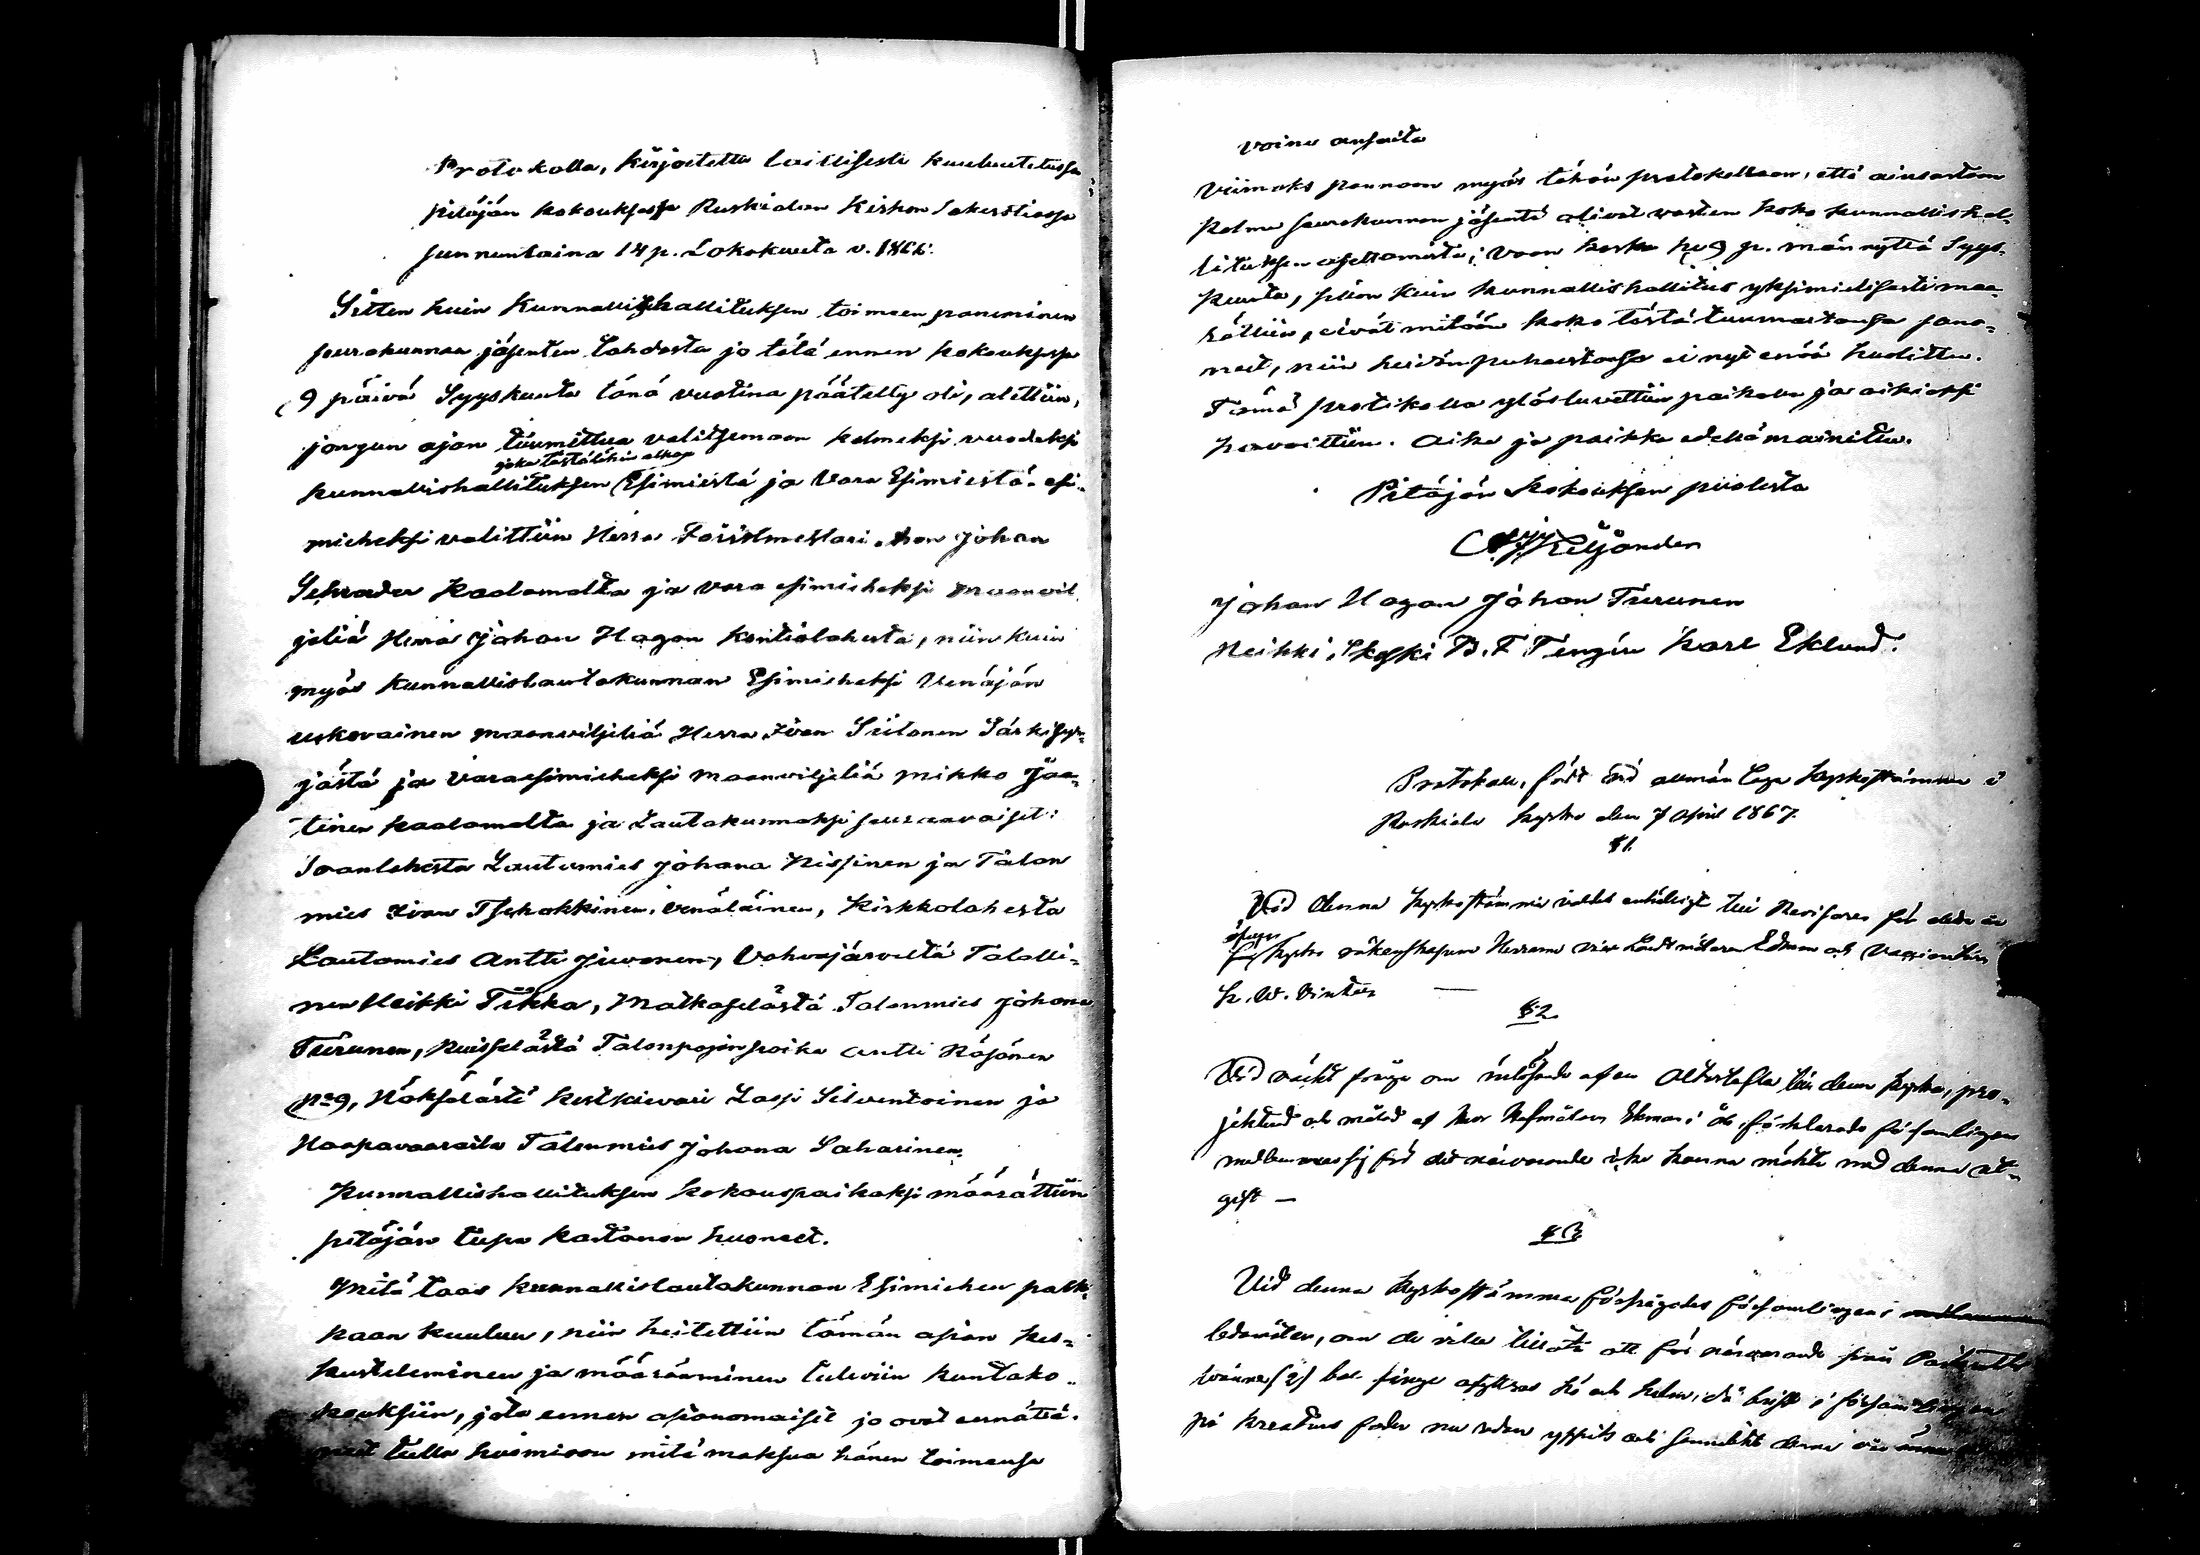 Protokolla, kirjoitettu laillisesti kuulutetussa
pitäjän kokouksessa Ruskialan Kirkon Sakerstiassa
sunnuntaina 14 p. Lokakuuta v. 1866.
Sitten kuin Kunnallishallituksen toimeen paneminen
seurakunnan jäsenten tahdosta jo tätä ennen kokouksessa
9 päivä Syyskuuta tänä vuotina päätetty oli, alettiin,
jongun ajan tuumittua valitsemaan kolmeksi vuodeksi
joka tästälähin alkaa
kunnallishallituksen Esimiestä ja Vara Esimiestä. Esi-
mieheksi valittiin Herra Forstmestari von Johan
Schrader Kaalamolta ja vara esimieheksi maanvil
jeliä Herra Johan Hagan Kontiolahesta, niin kuin
myös Kunnallislautakunnan Esimieheksi Venäjän
uskovainen maanviljeliä Herra Ivan Siitonen Särkisyr-
jästä ja Varaesimieheksi maanviljeliä Mikko Jaa-
tinen Kaalamolta ja Lautakunnaksi seuraavaiset:
Soanlahesta Lautamies Johana Nissinen ja Talon
mies Ivan Tschokkinen, venäläinen, Kirkkolahesta
Lautamies Antti Juvonen, Vahvajärveltä Talolli-
nen Heikki Tikka, Matkaselästä Talonmies Johana
Turunen, Ruisselästä Talonpojan poika Antti Räsänen
No 9, Näkselästä Kestkievari Lassi Silventoinen ja
Haapavaaralta Talonmies Johana Saharinen.
Kunnallishallituksen kokouspaikaksi määrättiin
pitäjän tupa kartanon huoneet.
Mitä taas kunnallislautakunnan Esimiehen palk-
kaan kuuluu, niin heitettiin tämän asian kes-
kusteleminen ja määrääminen tuleviin kuntako-
kouksiin, jota ennen asianomaiset jo ovat ennättä-
neet tulla huomioon mitä maksua hänen toimensa
voine ansaita
Viimeks pannaan myös tähän protokollaan, että ainoastaan
kolme seurakunnan jäsentä olivat vasten koko kunnallishal-
lituksen asettamista; vaan koska he 9 p. männyttä Syys-
kuuta, silloin kuin kunnallishallitus yksimielisesti maa-
rättiin, eivät mitään koko tästä tuumastansa sano-
neet, niin heidän puheestansa ei nyt enää huolittu.
Tämä protokolla ylösluettiin paikalla ja oikiaksi
havaittiin. Aika ja paikka edellämainittu.
Pitäjän kokouksen puolesta
Kiljander
Johan Hagan Johan Turunen
Heikki B. F. Tengén Karl Eklund.
Protokoll, fördt vid allmän laga Kyrkostämma i
Ruskiala kyrka den 7 April 1867.
§ 1.
Vid denna Kyrkostämma valdes enhälligt till Revisorer för
kyrko räkenskapen Herrarne vice Landtmätaren Edman och
H. W. Vinter
§ 2.
Vid väckt fråga om inlösande af en Altartafla till denna kyrka, pro-
jekterad och målad af Herr Hofmålare Ekman i Åbo, förklarade församlingens
medlemmar sig för det närvarande icke kunna mäkta med denna ut-
gift —
§ 3.
Vid denna Kyrkostämma förfrågades församlingens
ledamöter, om de ville tillåta att för närvarande från
tvänne (2) finge afyttras hö och halm, då brist i församlingen
på kreaturs foder nu redan yppats och